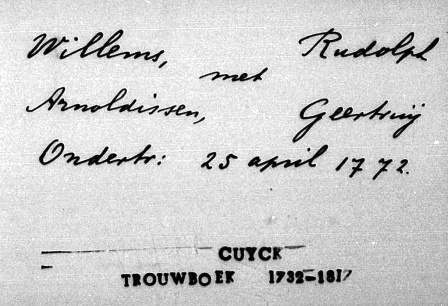 Willems, Rudolph
met
Arnoldissen, Geertruij
Ondertr: 25 april 1772.
CUYCK
TROUWBOEK 1732-1817